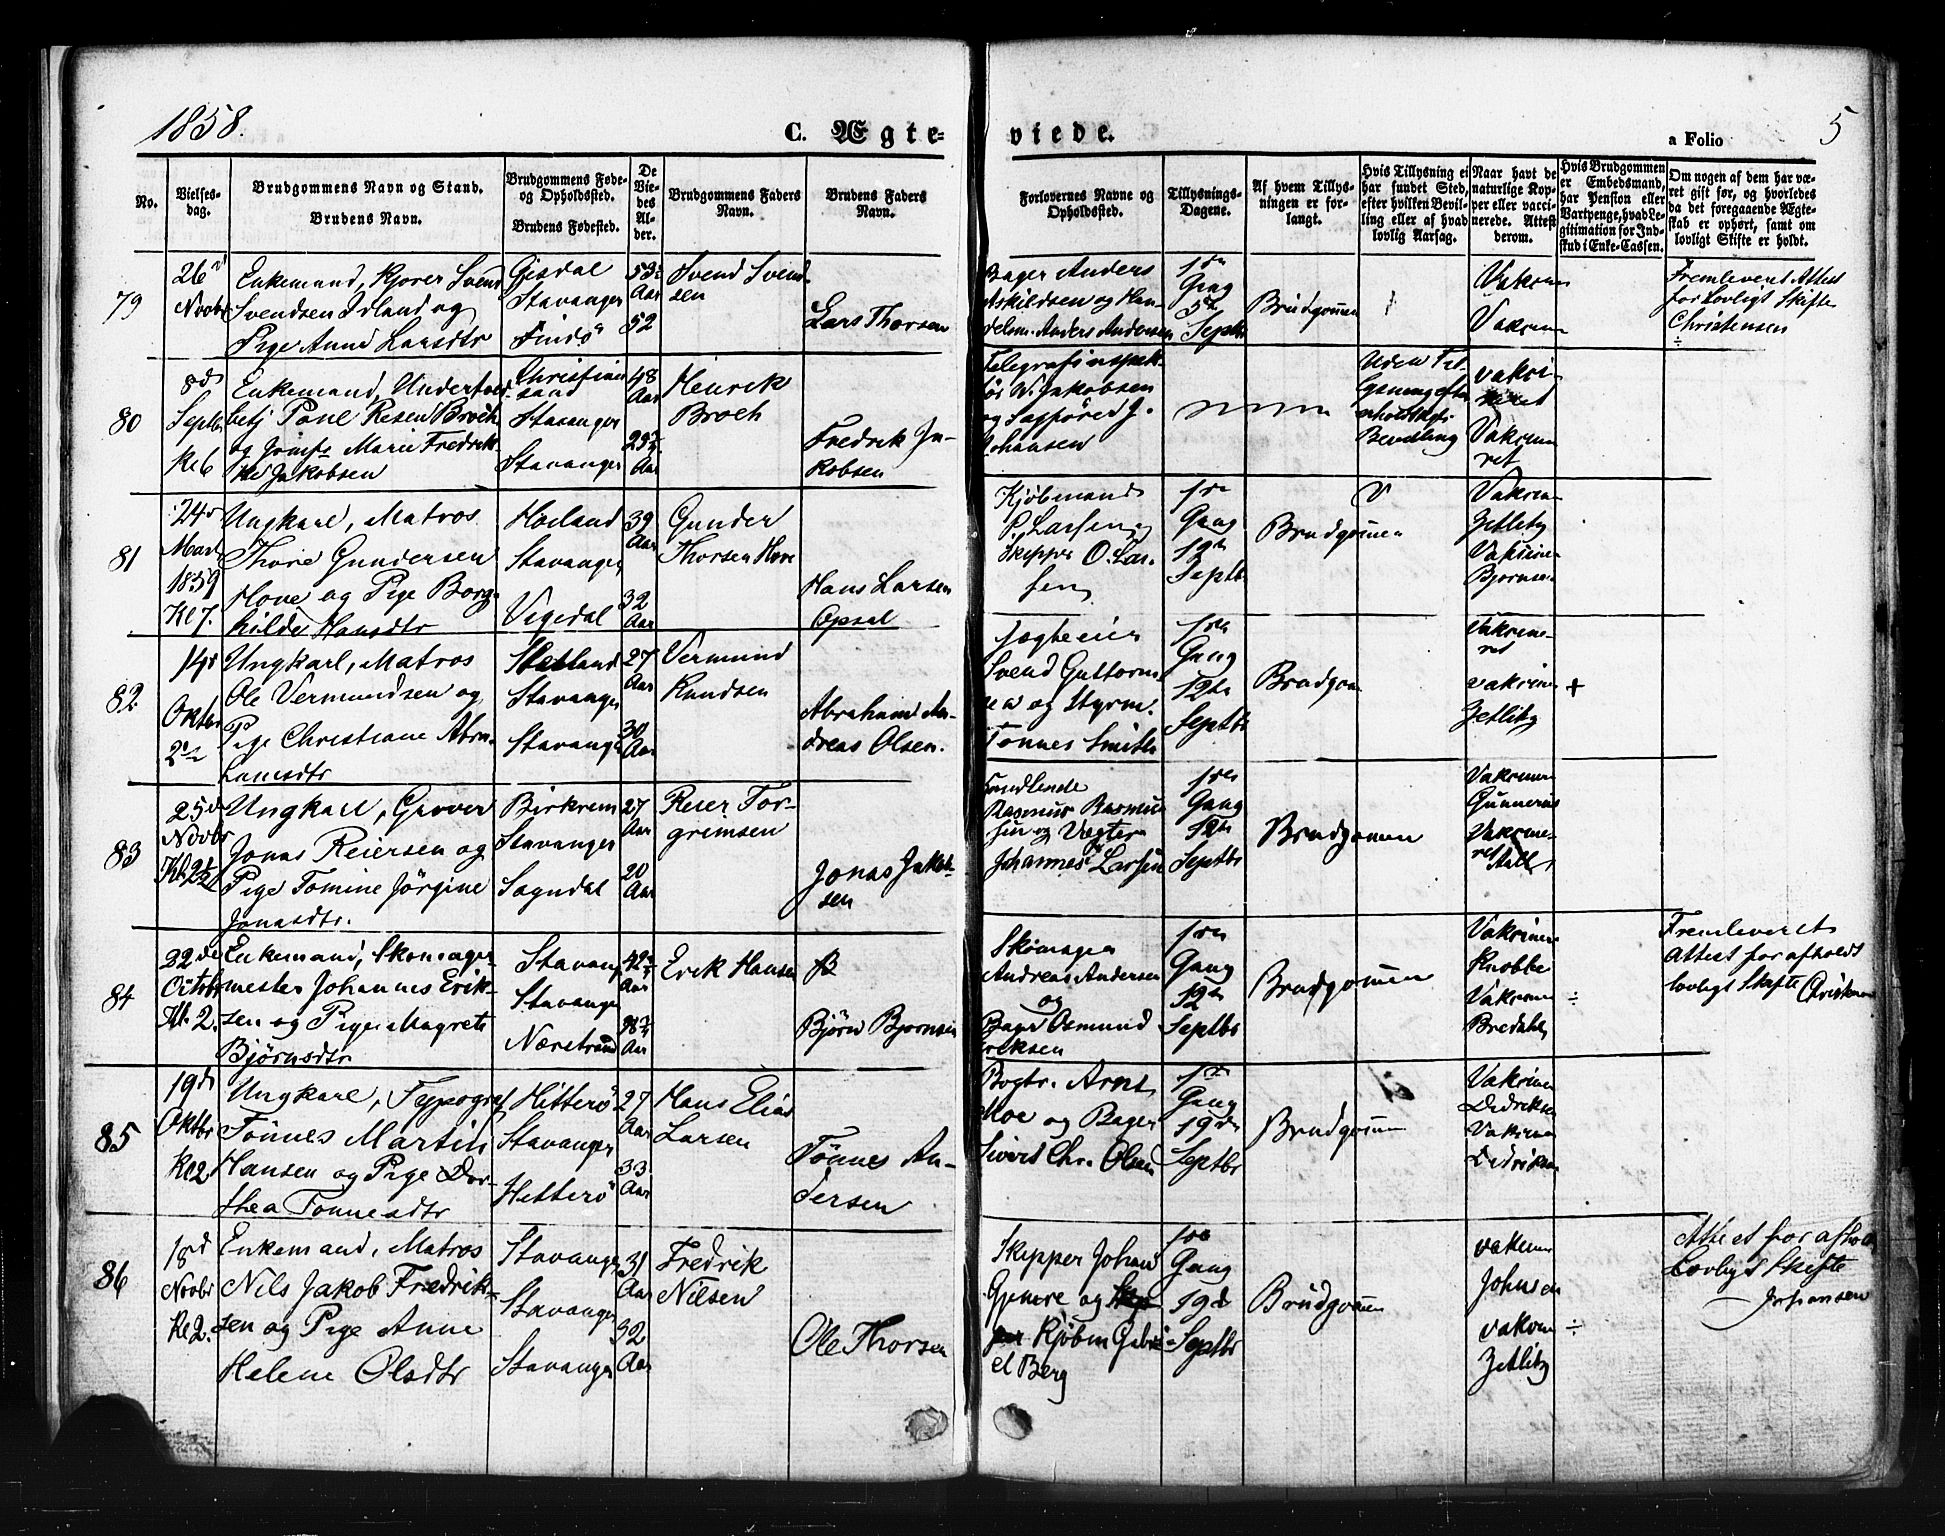 1858.
C. Ægte-
viede.
a Folio
5
No.
Vielses-
dag.
Brudgommens Navn og Stand.
Brudens Navn.
Brudgommens Føde-
og Opholdssted.
Brudens Fødested.
De
Vie-
des
Al-
der.
Brudgommens Faders
Navn.
Brudens Faders
Navn.
Forlovernes Navne og
Opholdssted.
Tillysnings-
Dagene.
Af hvem Tillys-
ningen er for-
langt.
Hvis Tillysning ei
har fundet Sted,
efter hvilken Bevil-
ling eller af hvad
lovlig Aarsag.
Naar havt de
naturlige Kop-
per eller vacci-
nerede. Attest
derom.
Hvis Brudgommen
er Embedsmand,
har Pension eller
Vartpenge, hvad Le-
gitimation for Ind-
skud i Enke-Cassen.
Om nogen af dem har væ-
ret gift før, og hvorledes
da det foregaaende Ægte-
skab er ophørt, samt om
lovligt Skifte er holdt.
79
26
Novbr
Enkemand, Kjører Svend
Svendsen Irland og
Pige Anne Larsdtr
Gjesdal
Stavanger
Findö
53
Aar
52
Svend Svend-
sen
Lars Thorsen
Bager Anders
Askildsen og Han-
delsm. Anders Andersen
1ste
Gang
5te
Septbr
Brudgommen
Vakcin
Vakcin
Fremleveret Attest
for Lovligt Skifte
Christensen
80
8de
Septbr
Kl 6
Enkemand, Underfoed
betj Paul Resen Broch
og Jomfr Marie Fredrik-
ke Jakobsen
Christian
sand
Stavanger
Stavanger
48
Aar
25½
Aar
Henrik
Broch
Fredrik Ja-
kobsen
Telegrafinspek-
tör W. Jakobsen
og J.
Johansen
Uden Til
lysning efter
Bevilling
vakci-
neret
Vakcine
ret
81
24de
Marts
1859
Kl 7.
Ungkarl, Matros
Thore Gundersen
Hove og Pige Borg-
hilde Hansdtr
Høiland
Stavanger
Vigedal
39
Aar
32
Aar
Gunder
Thorsen Hove
Hans Larsen
Opsal
Kjöbmand
P. Larsen og
Skipper O. Lar-
sen
1ste
Gang
12te
Septbr
Brudgommen
Vakcin
Zetlitz
Vakcine
Bjornsen
82
14de
Oktbr
Ungkarl, Matros
Ole Vermundsen og
Pige Christiane Abra-
hamsdtr
Stavanger
Stavanger
27
Aar
30
Aar
Vermund
Knudsen
Abraham An-
dreas Olsen.
Jægteeier
Svend Guttorm-
sen og Styrm.
Tönnes Smith
1ste
Gang
12te
Septbr
Brudgom
Vakcine-
ret
vakcine
Zetlitz
+
83
25de
Novbr
Kl 2½
Ungkarl, Garver
Jonas Reiersen og
Pige Tomine Jörgine
Jonasdtr.
Birkrem
Stavanger
Sogndal
27
Aar
20
Aar
Reier Tor-
grimsen
Jonas Jakob-
sen
Handlende
Rasmus Rasmus
sen og Vægter
Johannes Larsen
1ste
Gang
12te
Septbr
Brudgommen
Vakcine
Gunnerus
Vakcine-
ret
Stall
84
22de
Octobr
Kl. 2.
Enkemand, Skomager-
mester Johannes Erik-
sen og Pige Magrete
Björnsdtr
Stavang
Stavanger
Nærstrand
42½
Aar
38½
Aar
Erik Hansen
Björn Bjornsen
Skomager
Andreas Andersen
og
Bager Osmund
Eriksen
1ste
Gang
12te
Septbr
Brudgommen
Vakcine
Knobbe
Vakcine
Bredahl
÷
Fremleveret
Attest for afholdt
lovligt Skifte Christensen
85
19de
Oktbr
Kl 2
Ungkarl, Typograf
Tönnes Martin
Hansen og Pige Dor-
thea Tönnesdtr
Hitterö
Stavanger
Hitterö
27
Aar
33
Aar
Hans Elias
Larsen
Tönnes An-
dersen
Bogtr. Arnt
Moe og Bager
Sivert Chr. Olsen
1ste
Gang
19de
Septbr
Brudgommen
Vakcine
Didriksen
Vakcine
Didriksen
86
18de
Novbr
Kl 2.
Enkemand, Matros
Nils Jakob Fredrik-
sen og Pige Anne
Helene Olsdtr
Stavanger
Stavanger
Stavanger
31
Aar
32
Aar
Fredrik
Nilsen
Ole Thorsen
Skipper Johan
Gjemre og
Kjöbm Gabri-
el Berg
1ste
Gang
19de
Septbr
Brudgommen
vakcine
Johnsen
vakcine
Zetlitz
÷
Attest for afholdt
Lovligt Skifte
Johansen